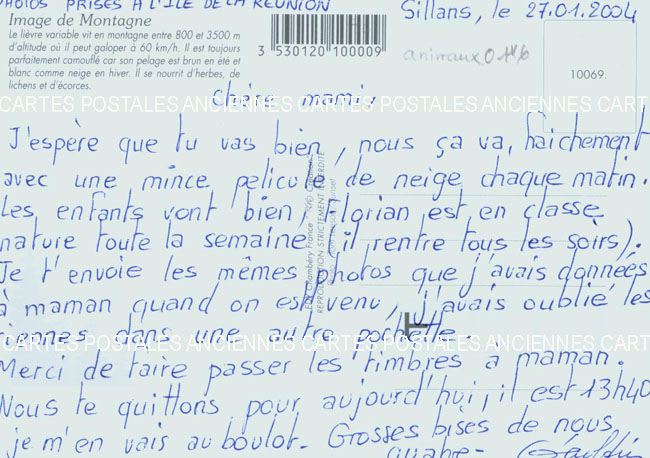 PHOTOS PRISES A L'ILE DE LA REUNION
Sillans, le 27.01.2004
Image de Montagne
Le lièvre variable vit en montagne entre 800 et 3500 m
d'altitude où il peut galoper à 60 km/h. Il est toujours
parfaitement camouflé car son pelage est brun en été et
blanc comme neige en hiver. Il se nourrit d'herbes, de
lichens et d'écorces.
3 530120 100009
animaux
10069.
Chère mamie,
CARTES POSTALES ANCIENNES CARTES POSTALES ANCIENNES CART
J'espère que tu vas bien, nous ça va, fraîchement
avec une mince pelicule de neige chaque matin.
Les enfants vont bien, Florian est en classe
nature toute la semaine (il rentre tous les soirs).
Je t'envoie les mêmes photos que j'avais données
à maman quand on est venu, j'avais oublié les
tiennes dans une autre pochette.
CARTES POSTALES ANCIENNES CARTES POSTALES ANCIENNES CART
Merci de faire passer les timbres a maman.
Nous te quittons pour aujourd'hui, il est 13h40
je m'en vais au boulot. Grosses bises de nous
quatre-
Chambéry France
REPRODUCTION STRICTEMENT INTERDITE